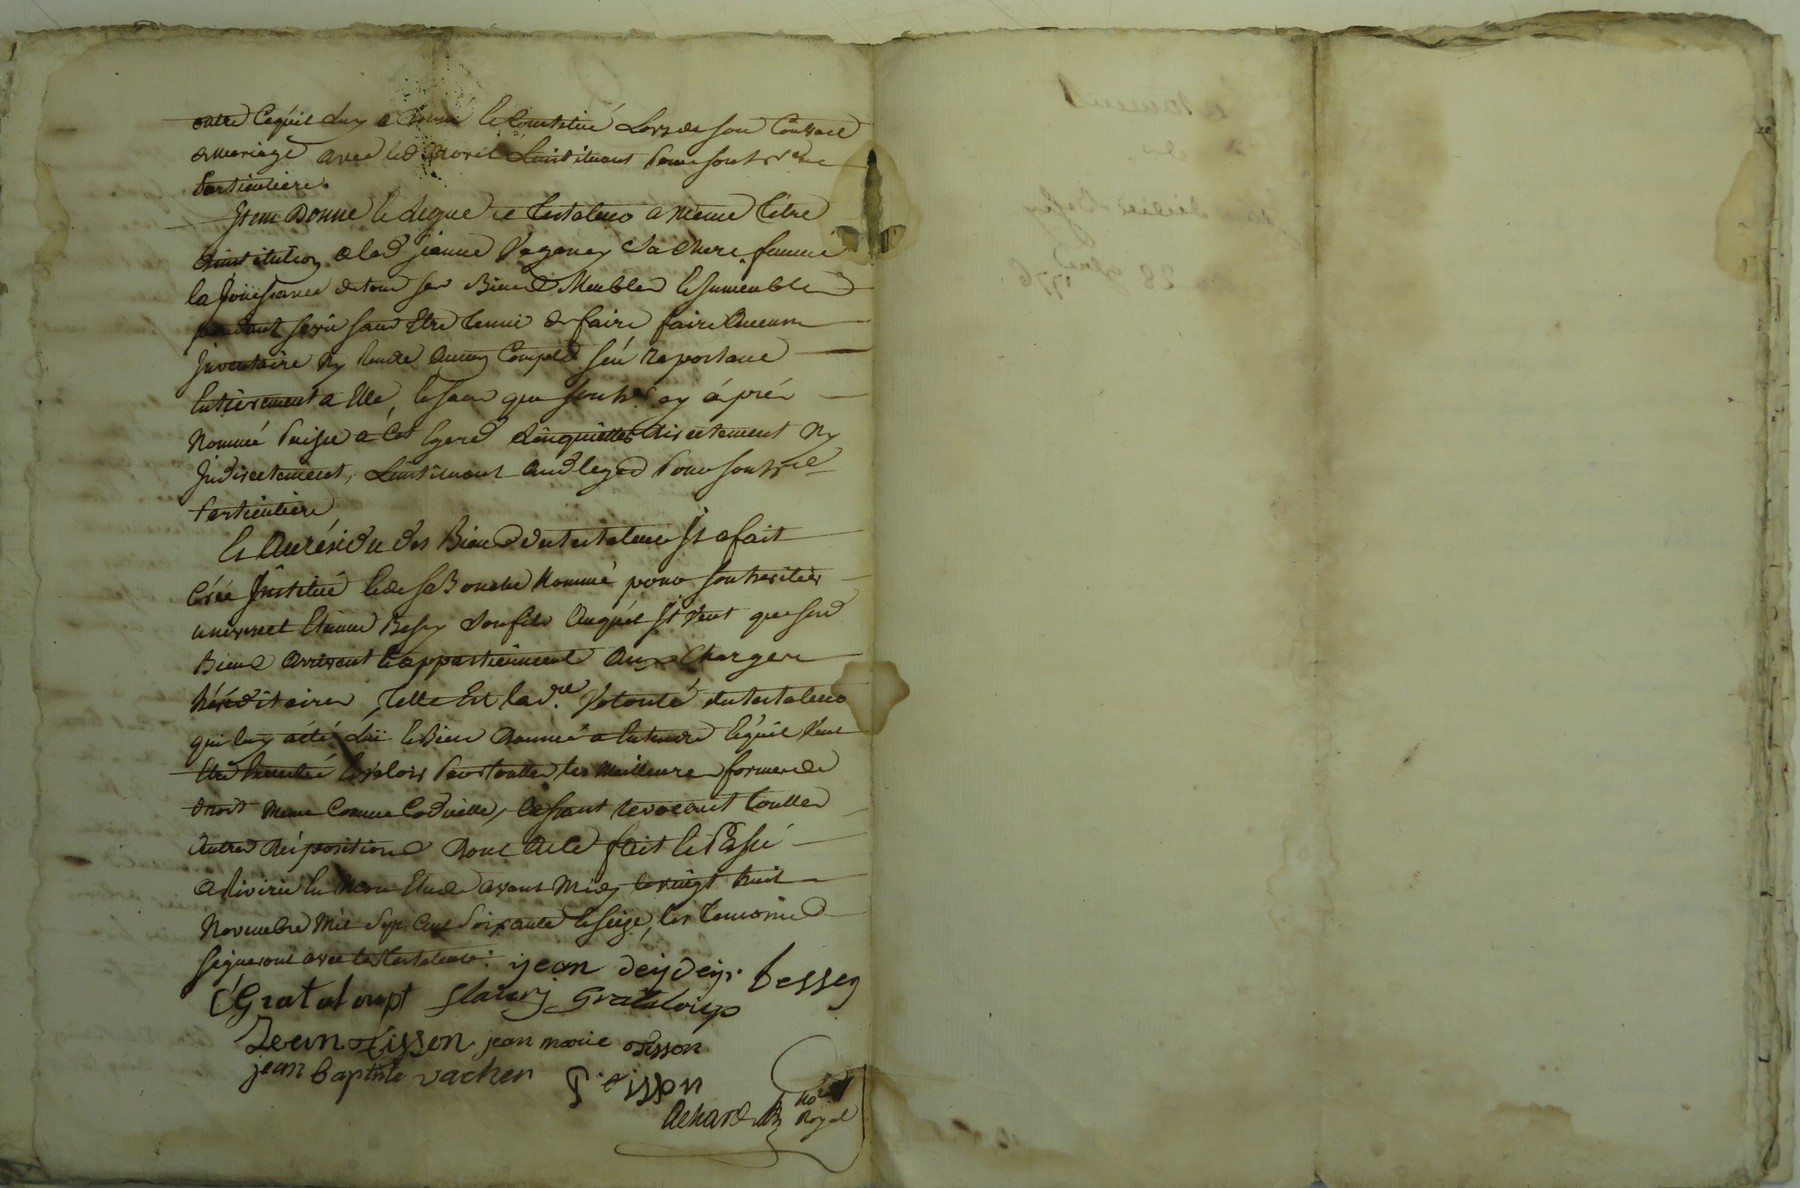 outre cequil luy a donné & constitué lors de son contract
de mariage avec led. Linstituant pour son hre
particuliere.
Item donne & legue le testateur a meme titre
dinstitution a lad. jeanne sa chere femme
la joüissance de tous ses Biens Meubles & jmeubles
pendant sa vie sans etre tenue de faire faire aucun
Inventaire ny rendre aucun compte sén raportant
entierement a elle, & sans que son her. cy áprés
nommé puisse a cet egard linquietter directement ny
Indirectement, Linstituant aud. leged pour son hre
particuliere
Et Au résidu des Biens du testateur Il a fait
créé Institué & de sa Bouche nommé pour son heritier
universel Etienne Bessy son fils auquel Il veut que sesd.
Biens arrivent & appartiennent aux charges
héréditaires, telle Est la dre. Volonté du testateur
qui luy a été Lüe & Bien donnée a entendre & quil veut
Etre executée & valoir par touttes les meilleures formes de
droit meme comme Codicille, cassant revocant touttes
autres dispositions Dont acte fait & Passé
a Rivirie En Mon Etude avant Midy le vingt huit
Novembre Mil sept cent soixante & seize, les temoins
signeront avec le testateur. ijean deijdeijr bessey
CGrataloupt flaury Grataloup
Jean Pisson jean marie pisson
jean baptiste vacher P. pisson
Achard Nore
Royal